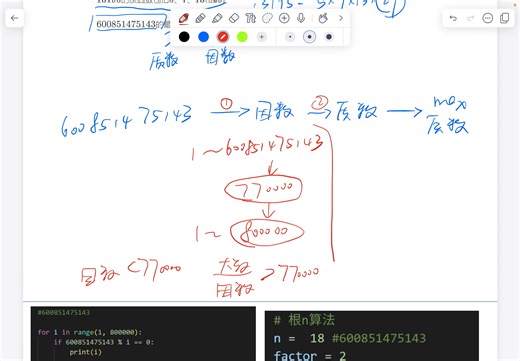 13195 = 5×7×13×29
600851475143的最
质数 因数
600851475143 ① 因数 ② 质数 max
质数
1～600851475143
770000
1～ 800000
因数<770000 大数/因数 >770000
#600851475143
for i in range(1, 800000):
if 600851475143 % i == 0:
print(i)
# 根n算法
n = 18 #600851475143
factor = 2